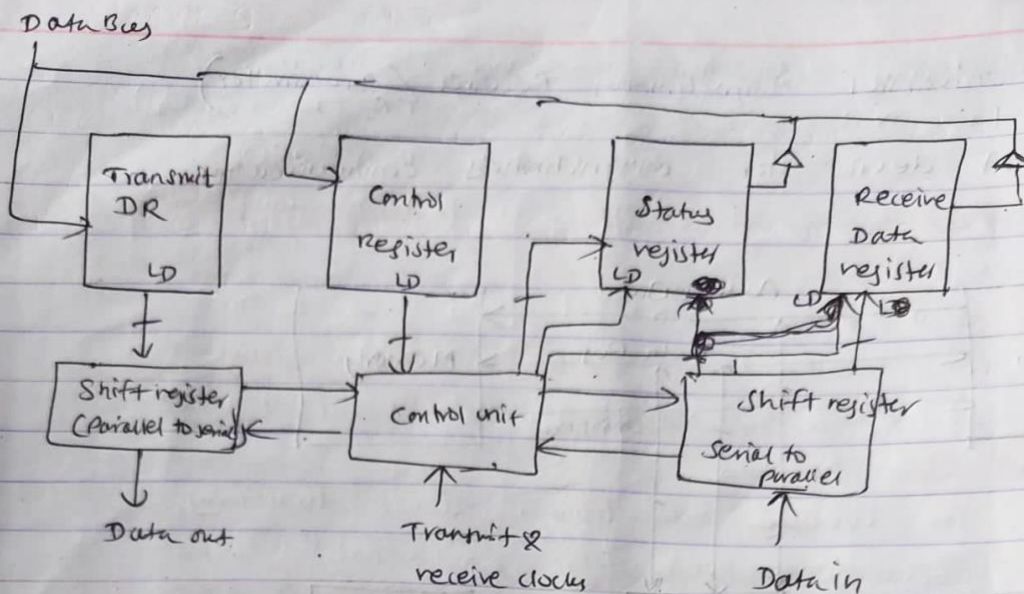 Data Bus
Transmit
DR
LD
Control
Register
LD
Status
register
LD
Receive
Data
register
LD
Shift register
(Parallel to serial)
Control unit
Shift register
Serial to
parallel
Data out
Transmit &
receive clocks
Data in